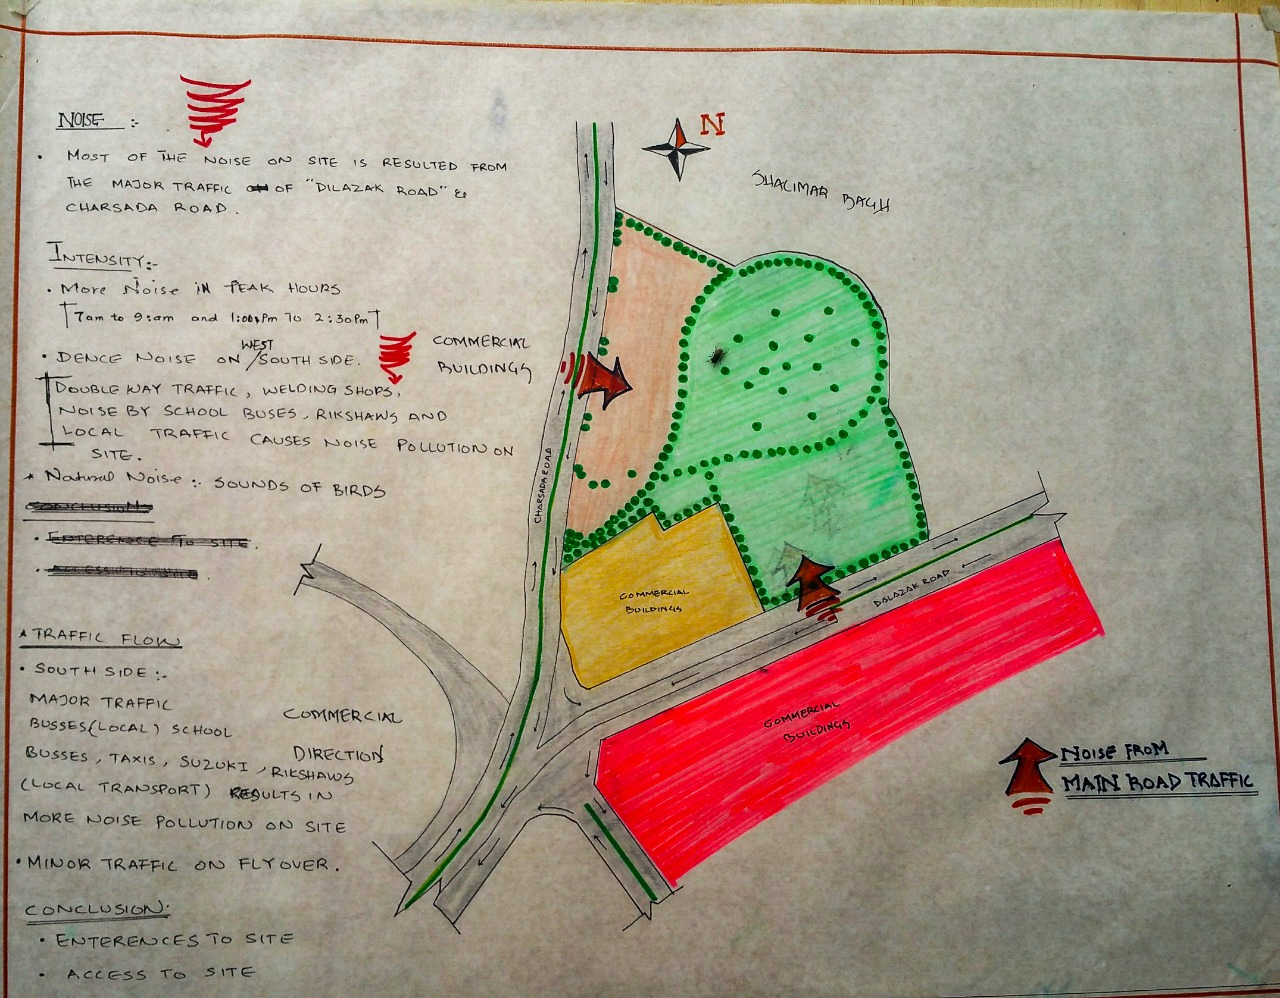 NOISE :-
• MOST OF THE NOISE ON SITE IS RESULTED FROM
THE MAJOR TRAFFIC OF "DILAZAK ROAD" &
CHARSADA ROAD.
INTENSITY:-
• MORE NOISE IN PEAK HOURS
7am to 9:am and 1:00Pm To 2:30Pm
• DENCE NOISE ON WEST/SOUTH SIDE.
DOUBLE WAY TRAFFIC, WELDING SHOPS,
NOISE BY SCHOOL BUSES, RIKSHAWS AND
LOCAL TRAFFIC CAUSES NOISE POLLUTION ON
SITE.
* Natural Noise:- SOUNDS OF BIRDS
CONCLUSION
• ENTERENCE TO SITE.
* TRAFFIC FLOW
• SOUTH SIDE:-
MAJOR TRAFFIC
BUSSES(LOCAL) SCHOOL
BUSSES, TAXIS, SUZUKI, RIKSHAWS
(LOCAL TRANSPORT) RESULTS IN
MORE NOISE POLLUTION ON SITE
• MINOR TRAFFIC ON FLYOVER.
CONCLUSION:
• ENTERENCES TO SITE
• ACCESS TO SITE
COMMERCIAL
BUILDINGS
COMMERCIAL
DIRECTION
N
SHALIMAR BAGH
CHARSADA ROAD
COMMERCIAL
BUILDINGS
DALAZAK ROAD
COMMERCIAL
BUILDINGS
NOISE FROM
MAIN ROAD TRAFFIC